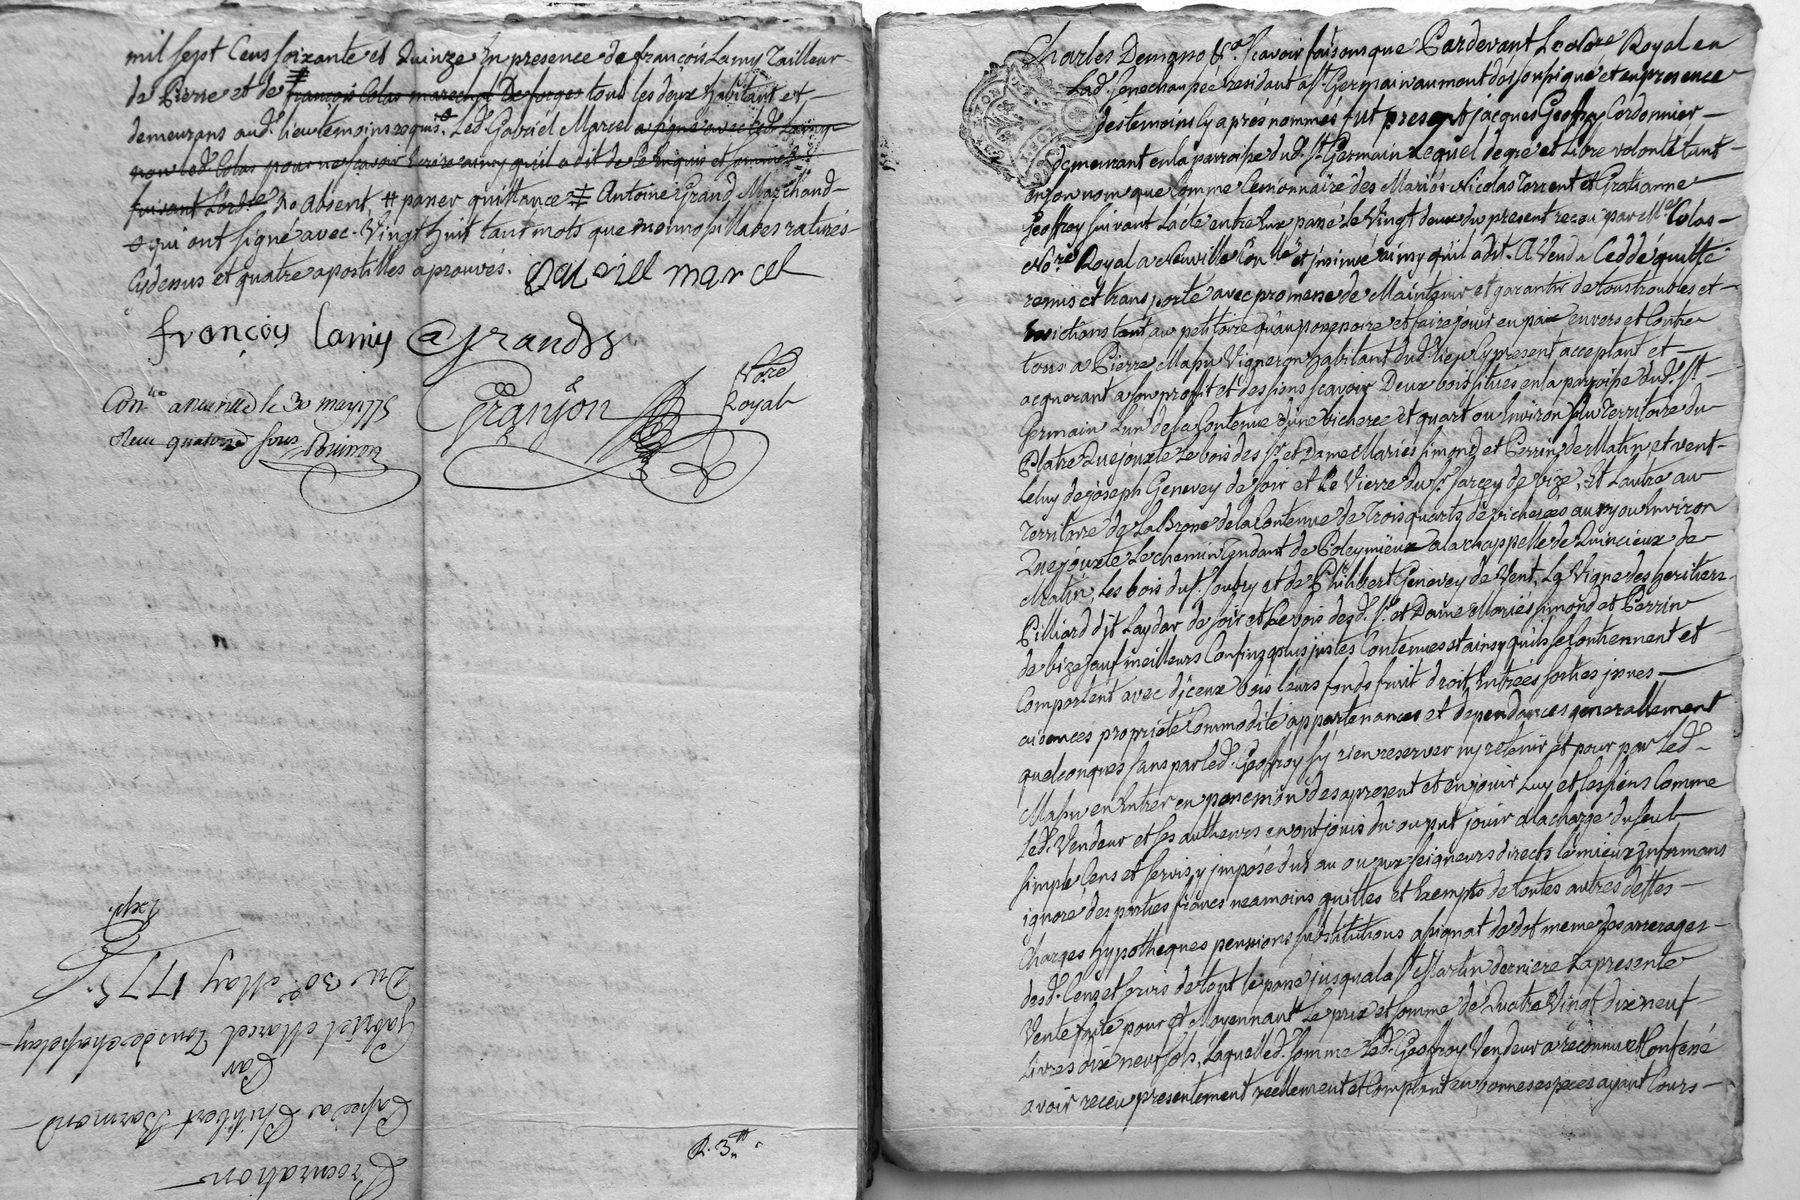 mil sept Cens soixante et Quinze En presence de françois Lamy Tailleur
de Pierre et de françois Colas marechal De forges tous les deux habitant et
demeurans aud. lieu temoins requis Led. Gabriel Marcel a signé avec led. Lamy
non led. Colas pour ne scavoir Ecrire ainsy qu'il a dit de ce Enquis et sommé
suivant Lord.ce de Absent # paner quittance Antoine Grand Marchand
qui ont signé avec. Vingt huit tant mots que monosillabes raturés
Cydessus et quatre apostilles aprouvés. gabriel marcel
françois lamy @ grand
Granjon Nore Royal
Con.lé a neuville le 30 may 1775
Reçu quatorze sous
Procuration
Passée a Philibert Barmond
Par
Gabriel Marcel
Du 30e May 1775.
Exp.
R. 3"
Charles Demano &.a scavoir faisons que Pardevant Le Nore Royal en
Lad. Senechaussée residant a St. Germain au mont d'or soussigné et en presence
des temoins cy après nommés fut present jacques Geoffroy Cordonnier
demeurant en la parroisse dud. St. Germain Lequel de gré et Libre volonté tant
en son nom que Comme Cessionnaire des Mariés Nicolas Torrent et Gratianne
Geoffroy suivant Lacte entre Eux passé Le Vingt deux du present recu par Me. Colas
Nore. Royal a Neuville Con.llé et jnsinué ainsy qu'il a dit. A Vendu Ceddé quitté
remis et transporté avec promesse de Maintenir et garantir de tous troubles et
evictions tant au petitoire qu'au possessoire et faire jouir en paix envers et Contre
tous a Pierre Mapu Vigneron habitant dud. lieu Cy present acceptant et
acquerant a son profit et des siens scavoir Deux bois situés en la parroisse dud. St.
Germain Lun de la Contenue d'une bicherée et quart ou Environ au Territoire du
Platre Que jouxte Le bois des Sr. et Dame Mariés Simond et Perrin de Matin, et vent
Celuy de joseph Genevey de soir et Le Vierre du Sr. jarcey de bize, Et Lautre au
Territoire de La Brone de la Contenue de Trois quarts de bicherées aussy ou Environ
Que jouxte Le chemin tendant de Poleymieux a la chappelle de Quincieux de
Matin, Les bois du Sr. Soubry et de Philibert Genevey de Vent, La Vigne des heritiers
Pilliard dit Laydar de soir et Le bois desd. Sr. et Dame Mariés Simond et Perrin
de bize sauf meilleurs Confins plus justes Contenues et ainsy quils se Contiennent et
Comportent avec d'jceux bois leurs fonds fruit droit Entrées sorties jssues
aisances proprieté Commodité appartenances et dependances generallement
quelconques sans par led. Geoffroy s'y rien reserver ny retenir et pour par Led.
Mapu en Entrer en possession des apresent et en jouir Luy et Les siens Comme
Led. Vendeur et ses autheurs en ont jouis du ou put jouir a la charge du seul
simple Cens et servis y jmposé dus au ou aux seigneurs directs le mieux jnformans
ignoré des parties francs neamoins quittes et Exempts de toutes autres dettes
Charges hypotheques pensions substitutions assignat de dot meme des arrerages
desd. Cens et servis de tout le passé jusqua la St. Martin derniere La presente
Vente faite pour et Moyennant Le prix et somme de Quatre Vingt dix neuf
Livres dix neuf sols, Laquelle d. somme Led. Geoffroy Vendeur a reconnu et Confessé
avoir receu presentement reellement et Comptant en bonnes especes ayant Cours